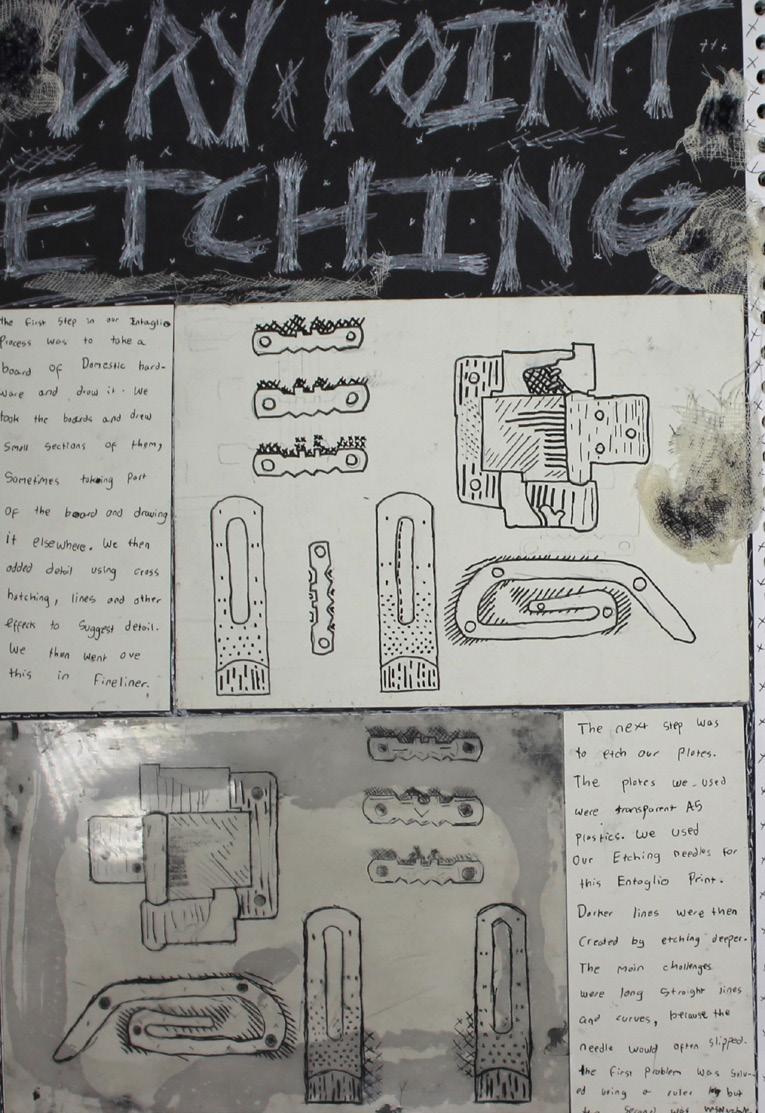 DRY POINT
ETCHING
the first step in our Entaglio
Process was to take a
board of Domestic hard-
ware and draw it. We
took the boards and drew
Small sections of them,
Sometimes taking part
of the board and drawing
it elsewhere. We then
added detail using cross
hatching, lines and other
effects to suggest detail.
We then went ove
this in Fineliner.
The next step was
to etch our plates.
The plates we used
were transparent A5
plastics. We used
Our Etching needles for
this Entaglio Print.
Darker lines were then
Created by etching deeper.
The main challenges
were long straight lines
and curves, because the
needle would often slipped.
the first problem was solv-
ed using a ruler but
second was